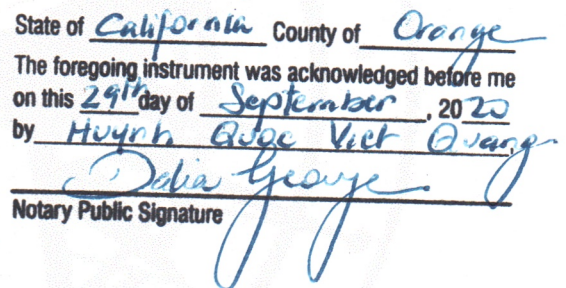 State of California County of Orange
The foregoing instrument was acknowledged before me
on this 29th day of September, 2020
by Huynh Quoc Viet Quang,
Dalia George
Notary Public Signature